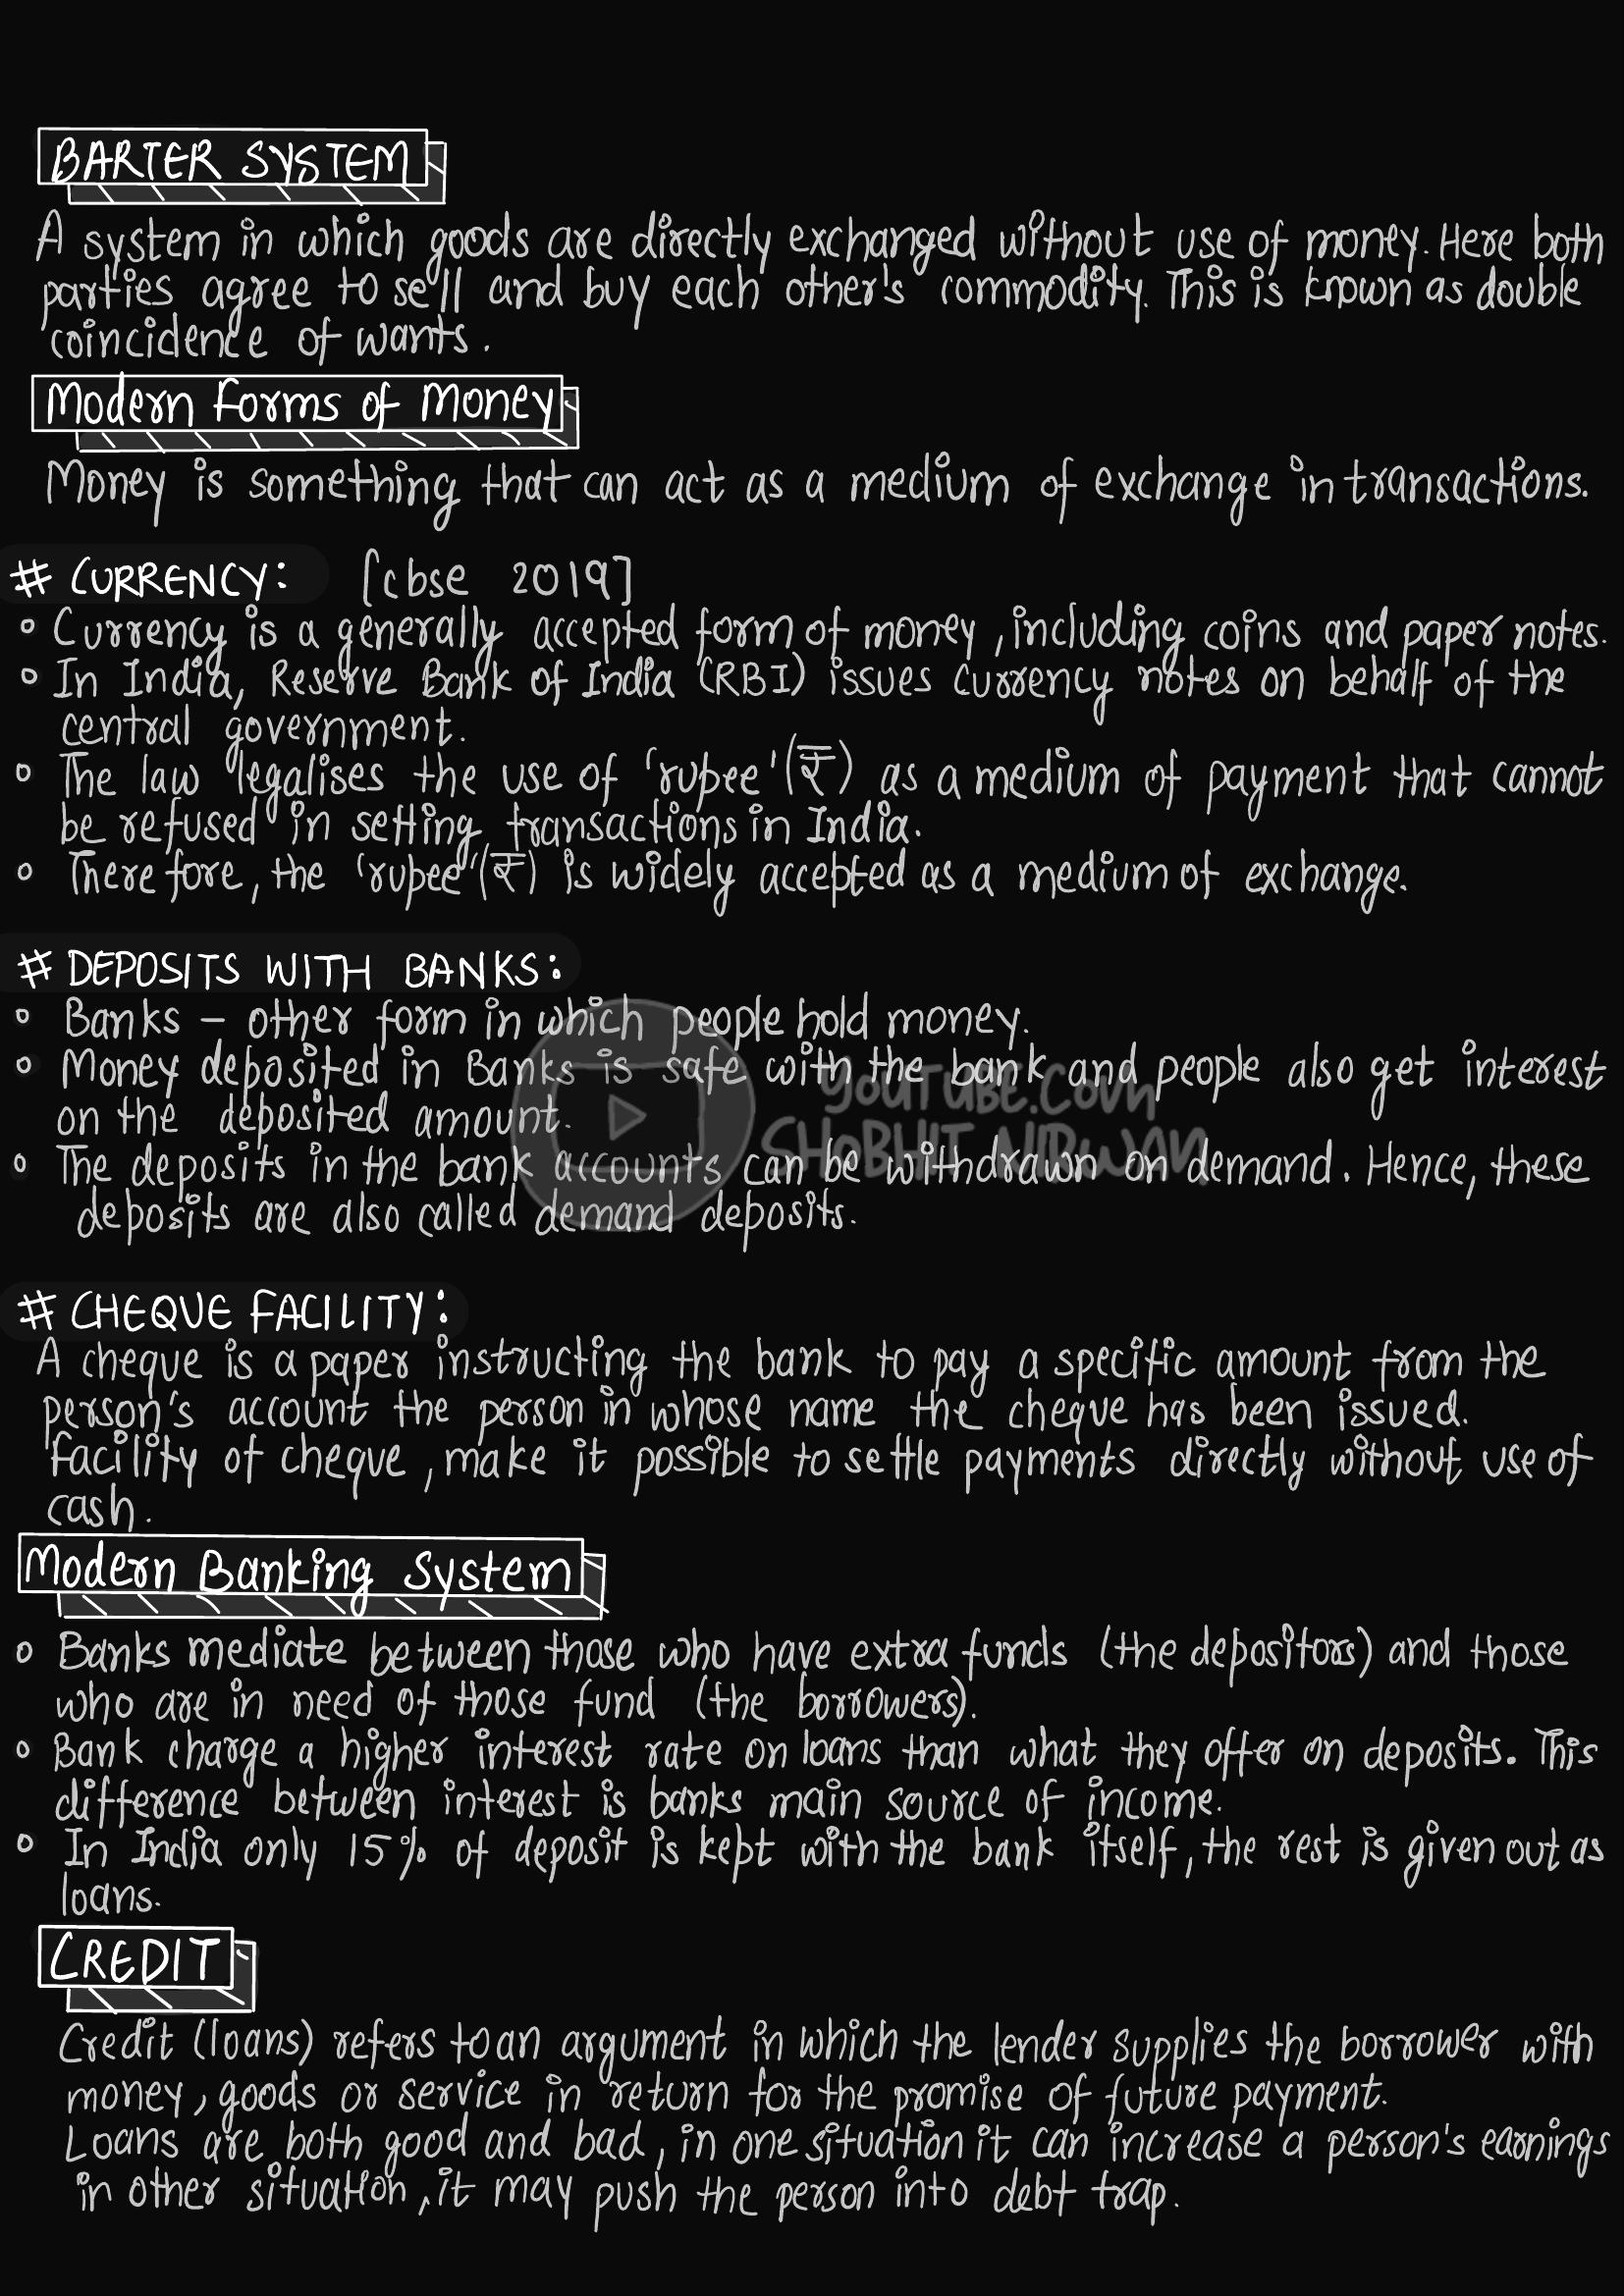 BARTER SYSTEM
A system in which goods are directly exchanged without use of money. Here both
parties agree to sell and buy each other's commodity. This is known as double
coincidence of wants.
Modern Forms of Money
Money is something that can act as a medium of exchange in transactions.
# CURRENCY: [cbse 2019]
• Currency is a generally accepted form of money, including coins and paper notes.
• In India, Reserve Bank of India (RBI) issues currency notes on behalf of the
central government.
• The law legalises the use of 'rupee' (₹) as a medium of payment that cannot
be refused in setting transactions in India.
• Therefore, the 'rupee' (₹) is widely accepted as a medium of exchange.
# DEPOSITS WITH BANKS:
• Banks – other form in which people hold money.
• Money deposited in Banks is safe with the bank and people also get interest
on the deposited amount.
YOUTUBE.COM
SHOBHIT NIRWAN
• The deposits in the bank accounts can be withdrawn on demand. Hence, these
deposits are also called demand deposits.
# CHEQUE FACILITY:
A cheque is a paper instructing the bank to pay a specific amount from the
person's account the person in whose name the cheque has been issued.
Facility of cheque, make it possible to settle payments directly without use of
cash.
Modern Banking System
• Banks mediate between those who have extra funds (the depositors) and those
who are in need of those fund (the borrowers).
• Bank charge a higher interest rate on loans than what they offer on deposits. This
difference between interest is banks main source of income.
• In India only 15% of deposit is kept with the bank itself, the rest is given out as
loans.
CREDIT
Credit (loans) refers to an argument in which the lender supplies the borrower with
money, goods or service in return for the promise of future payment.
Loans are both good and bad, in one situation it can increase a person's earnings
in other situation, it may push the person into debt trap.